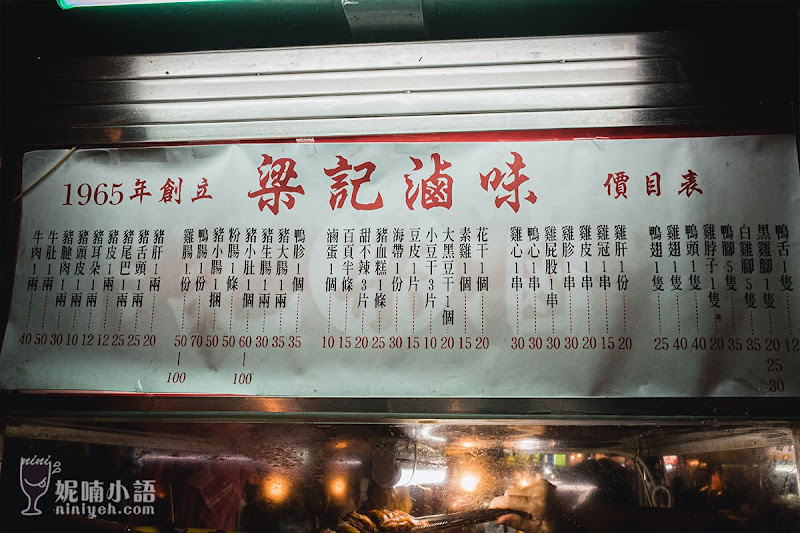 1965年創立 梁記滷味 價目表
牛肉1兩 40
牛肚1兩 50
豬腱肉1兩 30
豬頭皮1兩 10
豬耳朵1兩 12
豬皮1兩 12
豬尾巴1兩 25
豬舌頭1兩 25
豬肝1兩 20
雞腸1份 50|100
鴨腸1份 70
豬小腸1捆 50
粉腸1條 50
豬小肚1個 60|100
豬生腸1兩 30
豬大腸1兩 35
鴨胗1個 35
滷蛋1個 10
百頁半條 15
甜不辣3片 20
豬血糕1條 25
海帶1份 12
豆皮1片 15
小豆干3片 10
大黑豆干1個 20
素雞1個 15
花干1個 20
雞心1串 30
鴨心1串 30
雞屁股1串 30
雞胗1串 30
雞皮1串 20
雞冠1串 30
雞肝1份 30
鴨翅1隻 25
雞翅1隻 40
鴨頭1隻 40
雞脖子1隻 20
鴨腳5隻 35
白雞腳5隻 35
黑雞腳1隻 20 25 30
鴨舌1隻 12
nini
妮喃小語
niniyeh.com